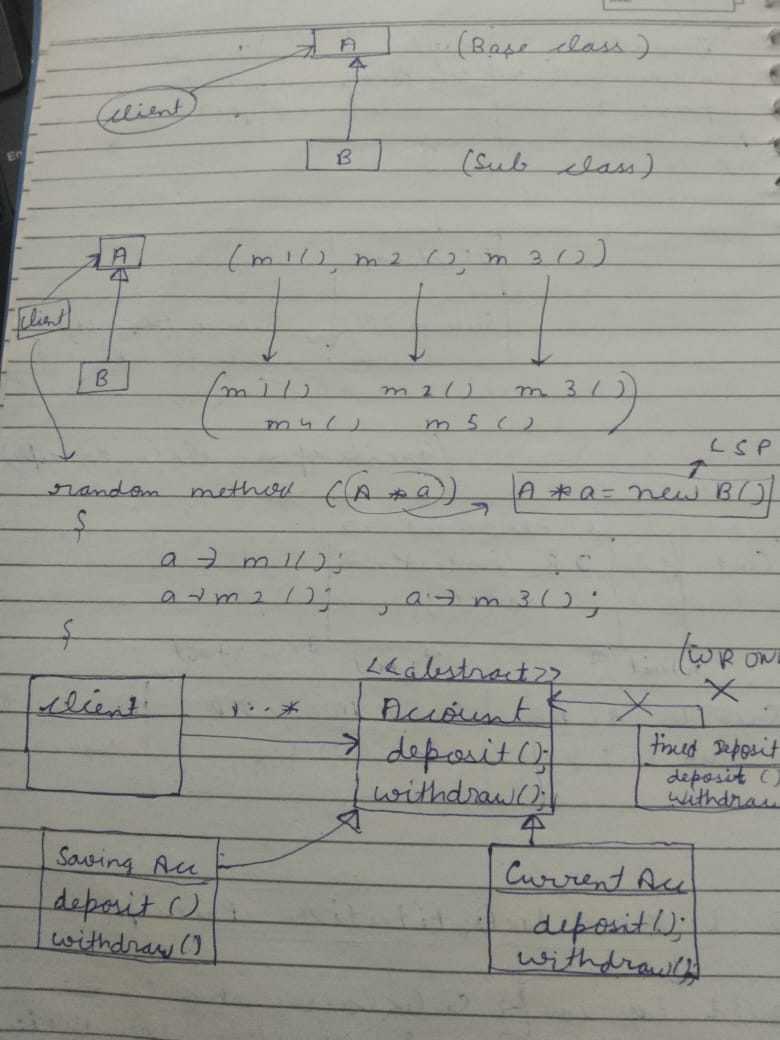 A (Base class)
client
B (Sub class)
A (m1(), m2(), m3())
client
B (m1() m2() m3()
m4() m5())
LSP
random method (A *a) A *a = new B()
{
a → m1();
a → m2(); , a → m3();
}
<<abstract>> (WRON
client 1..* Account
deposit();
withdraw();
Fixed Deposit
deposit()
withdraw
Saving Acc
deposit()
withdraw()
Current Acc
deposit();
withdraw();